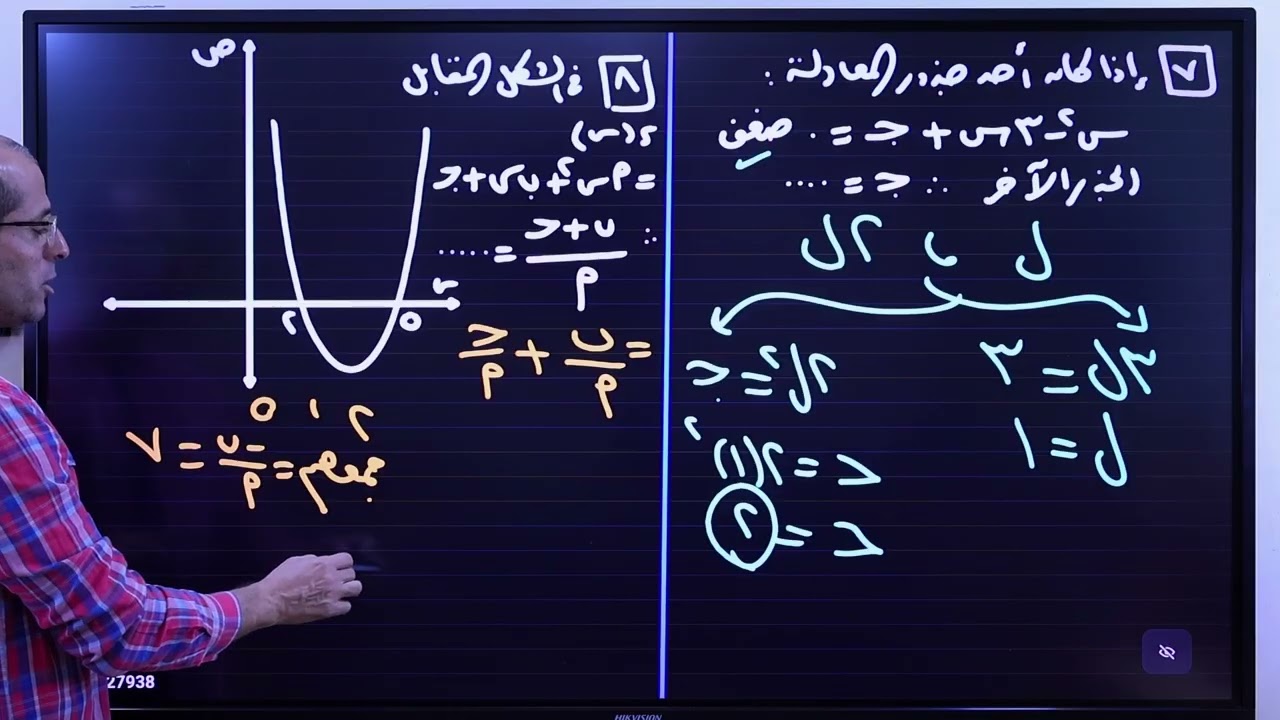 ٧ إذا كان أحد جذور المعادلة :
س٢ - ٣س + جـ = ٠ ضعف
الجذر الآخر ∴ جـ = ....
ل ، ٢ل
٣ل = ٣
ل = ١
٢ل٢ = جـ
جـ = ٢(١)٢
جـ = ٢
٨ في الشكل المقابل
د(س)
= أس٢ + ب س + جـ
∴ (ب + جـ)/أ = .....
= ب/أ + جـ/أ
ص
س
٢
٥
٢ ، ٥
مجموعهم = -ب/أ = ٧
27938
HIKVISION